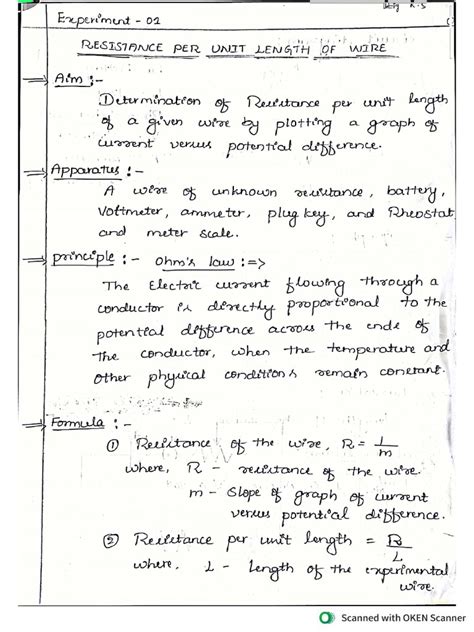 Experiment - 02
RESISTANCE PER UNIT LENGTH OF WIRE
⇒ Aim :-
Determination of Resistance per unit length
of a given wire by plotting a graph of
current versus potential difference.
⇒ Apparatus :-
A wire of unknown resistance, battery,
Voltmeter, ammeter, plug key, and Rheostat
and meter scale.
⇒ principle :- Ohm's law :=>
The Electric current flowing through a
conductor is directly proportional to the
potential difference across the ends of
the conductor, when the temperature and
other physical conditions remain constant.
⇒ Formula :-
① Resistance of the wire, R = 1/m
where, R - resistance of the wire.
m - slope of graph of current
versus potential difference.
② Resistance per unit length = R/L
where, L - length of the experimental
wire.
Scanned with OKEN Scanner